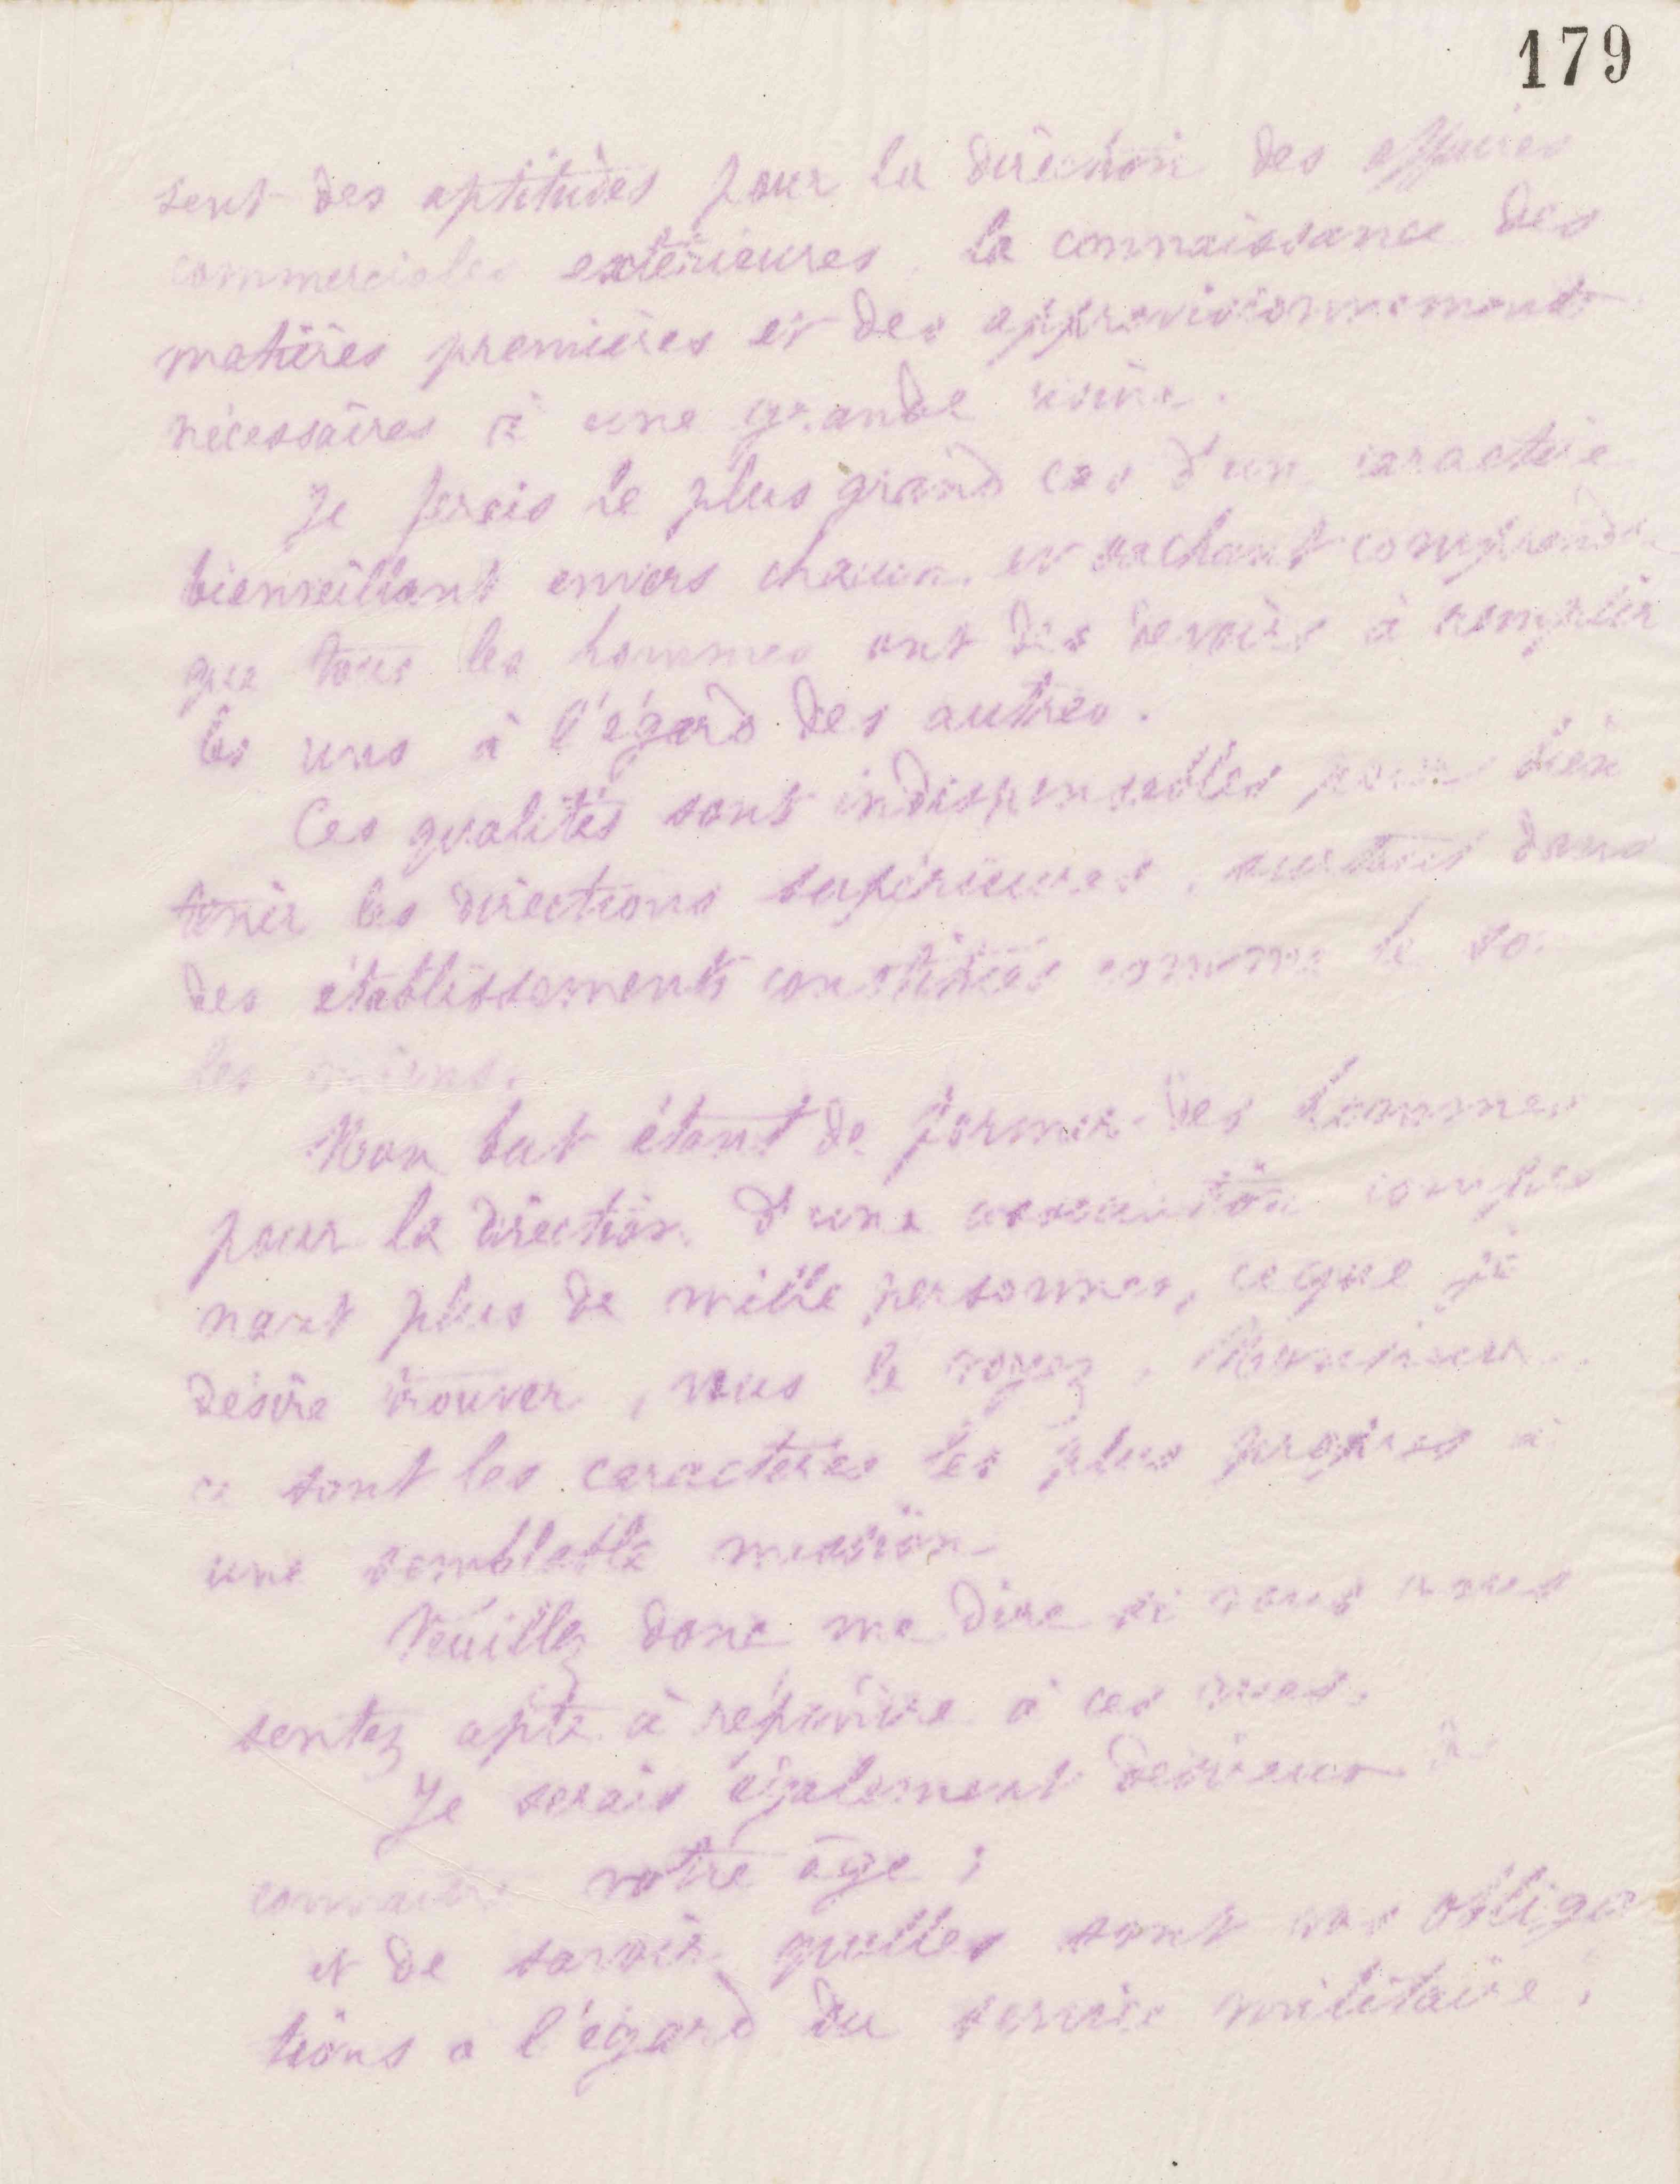 179
sent des aptitudes pour la direction des affaires
commerciales extérieures, la connaissance des
matières premières et des approvisionnements
nécessaires à une grande usine.
Je ferais le plus grand cas d'un caractère
bienveillant envers chacun, et sachant comprendre
que tous les hommes ont des devoirs à remplir
les uns à l'égard des autres.
Ces qualités sont indispensables pour bien
tenir les directions supérieures, surtout dans
des établissements constitués comme le sont
les miens.
Mon but étant de former des hommes
pour la direction d'une association compre
nant plus de mille personnes, ce que je
désire trouver, vous le voyez, Monsieur,
ce sont les caractères les plus propres à
une semblable mission.
Veuillez donc me dire si vous vous
sentez apte à répondre à ces vues.
Je serais également désireux de
connaître votre âge ;
et de savoir quelles sont vos obliga
tions à l'égard du service militaire ;